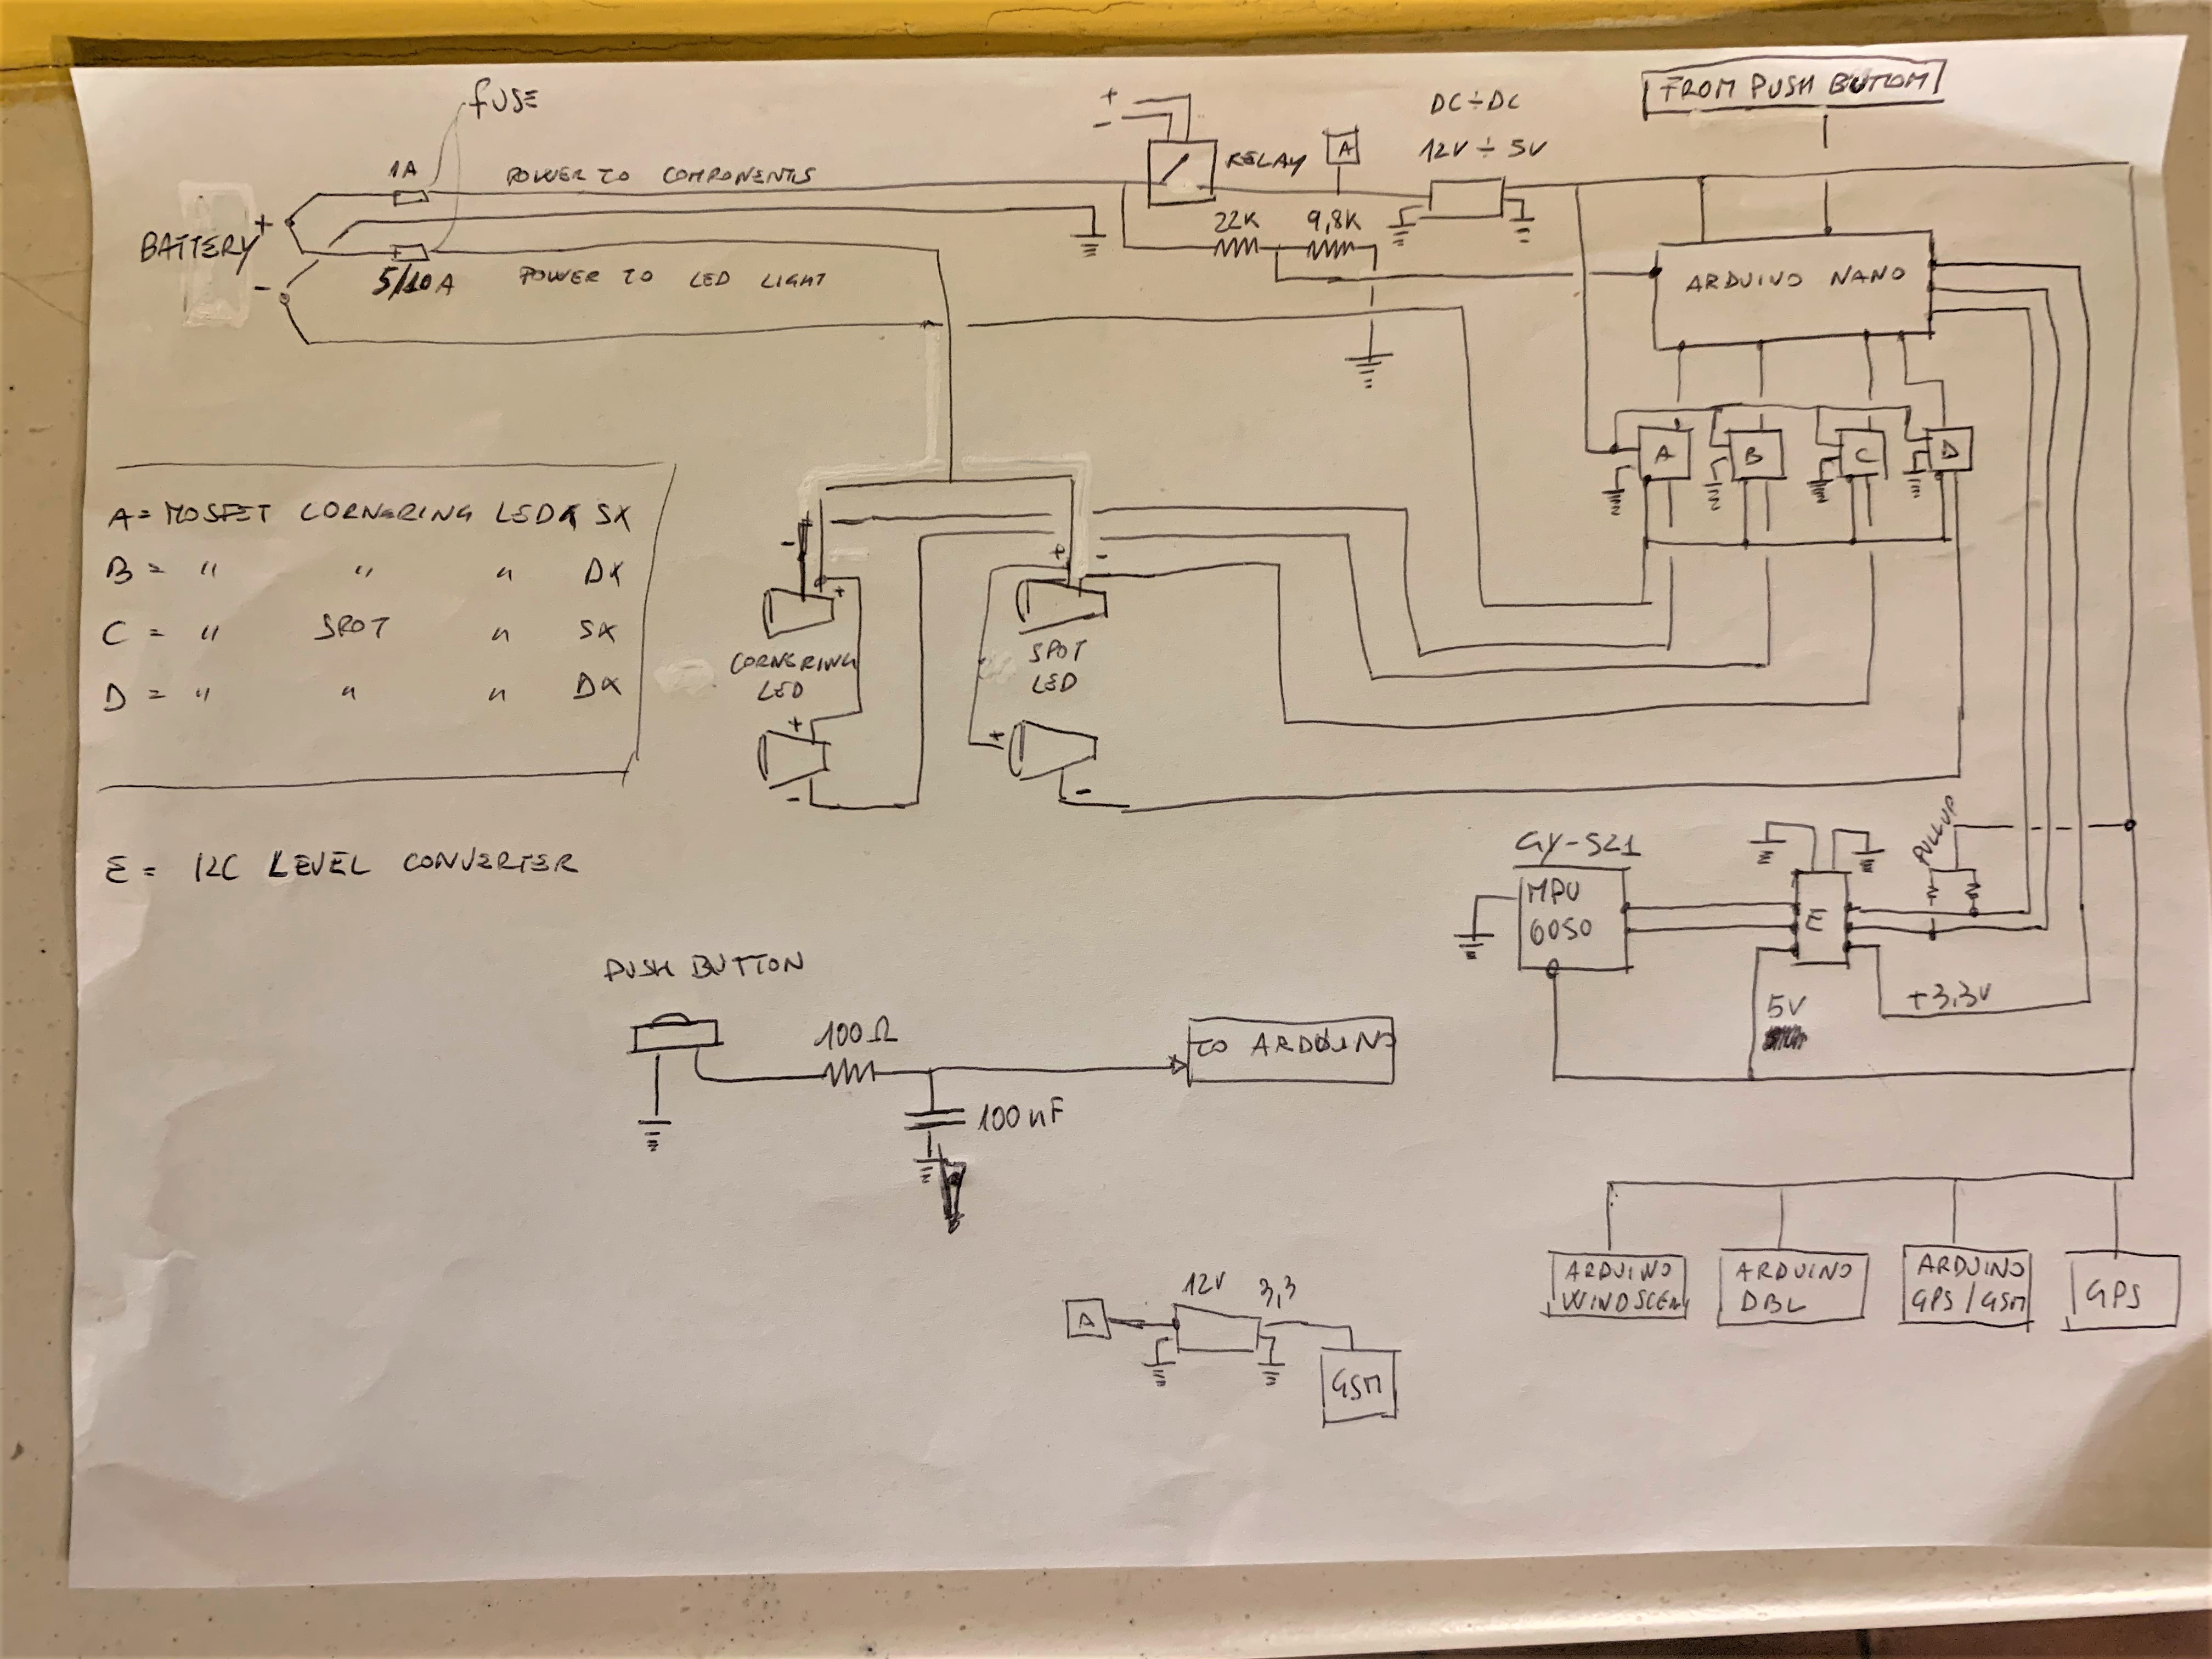 fUSE
1A
POWER TO COMPONENTS
+
BATTERY
-
5/10A
POWER TO LED LIGHT
+
-
RELAY
A
DC÷DC
12V÷5V
22K
9,8K
FROM PUSH BUTTOM
ARDUINO NANO
A
B
C
D
A = MOSFET CORNERING LED SX
B = " " " DX
C = " SPOT " SX
D = " " " DX
E = I2C LEVEL CONVERTER
-
+
CORNERING
LED
+
-
+
-
SPOT
LED
+
-
GY-521
MPU
6050
E
PULLUP
5V
+3,3V
PUSH BUTTON
100Ω
TO ARDUINO
100nF
ARDUINO
WINDSCEN
ARDUINO
DBL
ARDUINO
GPS/GSM
GPS
A
12V
3,3
GSM